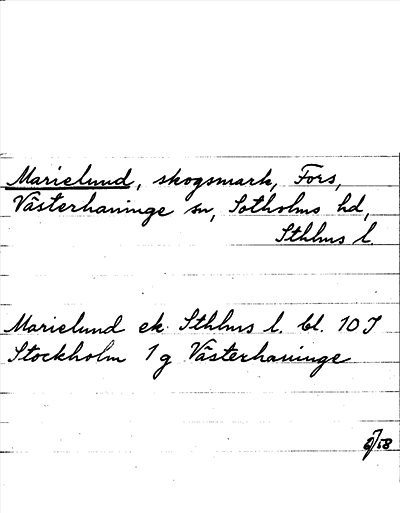 Marielund, skogsmark, Fors,
Västerhaninge sn, Sotholms hd,
Sthlms l.
Marielund ek. Sthlms l. bl. 10 J
Stockholm 1 g Västerhaninge